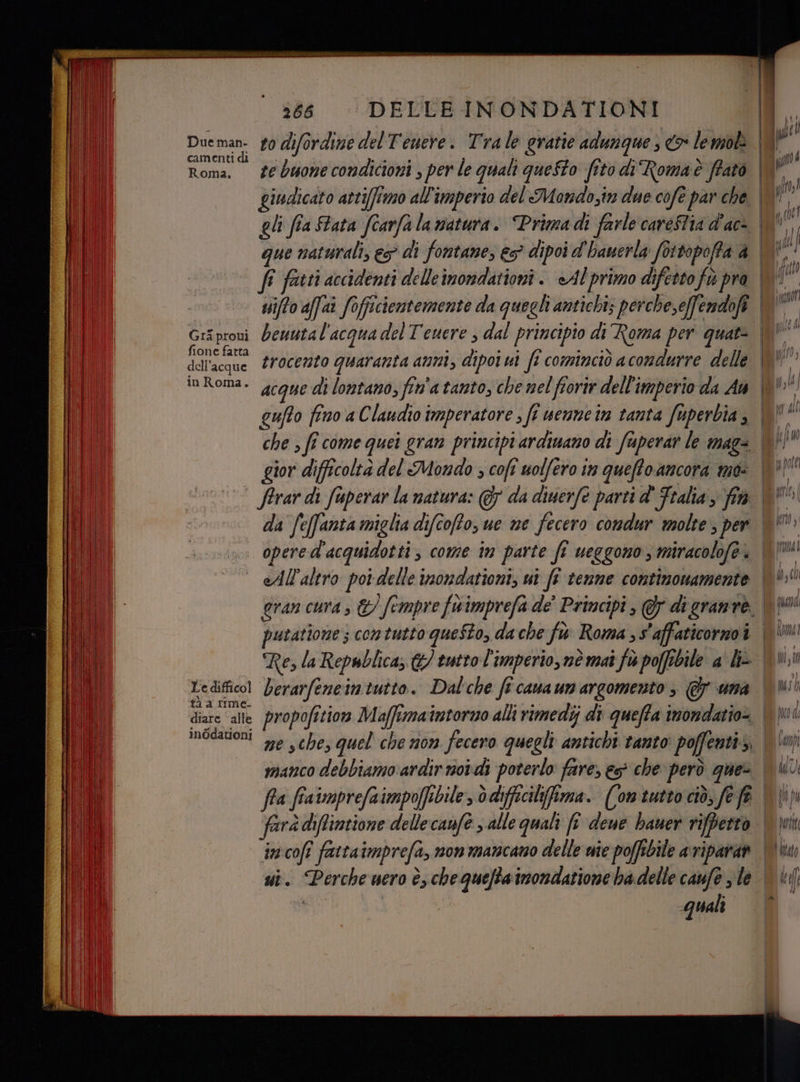 266 DELLE INONDATIONI
Due man-
camenti di
Roma.
to disordine del Teuere. Tra le gratie adunque, & le mol-
te buone condicioni, per le quali questo sito di Roma è stato
giudicato attissimo all'imperio del Mondo, in due cose par che
gli sia stata scarsa la natura. Prima di farle carestia d'ac-
que naturali, & di fontane, & dipoi d'hauerla sottoposta a
si fatti accidenti delle inondationi. Al primo difetto fù pro
uisto assai sofficientemente da quegli antichi; perche, essendosi
Grã proui
sione fatta
dell'acque
in Roma.
beuuta l'acqua del Teuere, dal principio di Roma per quat-
trocento quaranta anni, dipoi ui si cominciò a condurre delle
acque di lontano, fin'a tanto, che nel fiorir dell'imperio da Au
gusto fino a Claudio imperatore, si uenne in tanta superbia,
che, si come quei gran principi ardiuano di superar le mag-
gior difficoltà del Mondo, cosi uolsero in questo ancora mo-
strar di superar la natura: & da diuerse parti d'Italia, fin
da sessanta miglia discosto, ue ne fecero condur molte, per
opere d'acquidotti, come in parte si ueggono, miracolose.
All'altro poi delle inondationi, ui si tenne continouamente
gran cura, & sempre fù impresa de' Principi, & di gran re
putatione; con tutto questo, da che fù Roma, s'affaticorno i
Re, la Republica, & tutto l'imperio, nè mai fù possibile a li-
Le difficol
tà a rime-
diare alle
inõdationi
berarsene in tutto. Dal che si caua un argomento, & una
proposition Massima intorno alli rimedij di questa inondatio-
ne, che, quel che non fecero quegli antichi tanto possenti,
manco debbiamo ardir noi di poterlo fare, & che però que-
sta sia impresa impossibile, ò difficilissima. Con tutto ciò, se si
farà distintione delle cause, alle quali si deue hauer rispetto
in cosi fatta impresa, non mancano delle uie possibile a riparar
ui. Perche uero è, che questa inondatione ha delle cause, le
quali